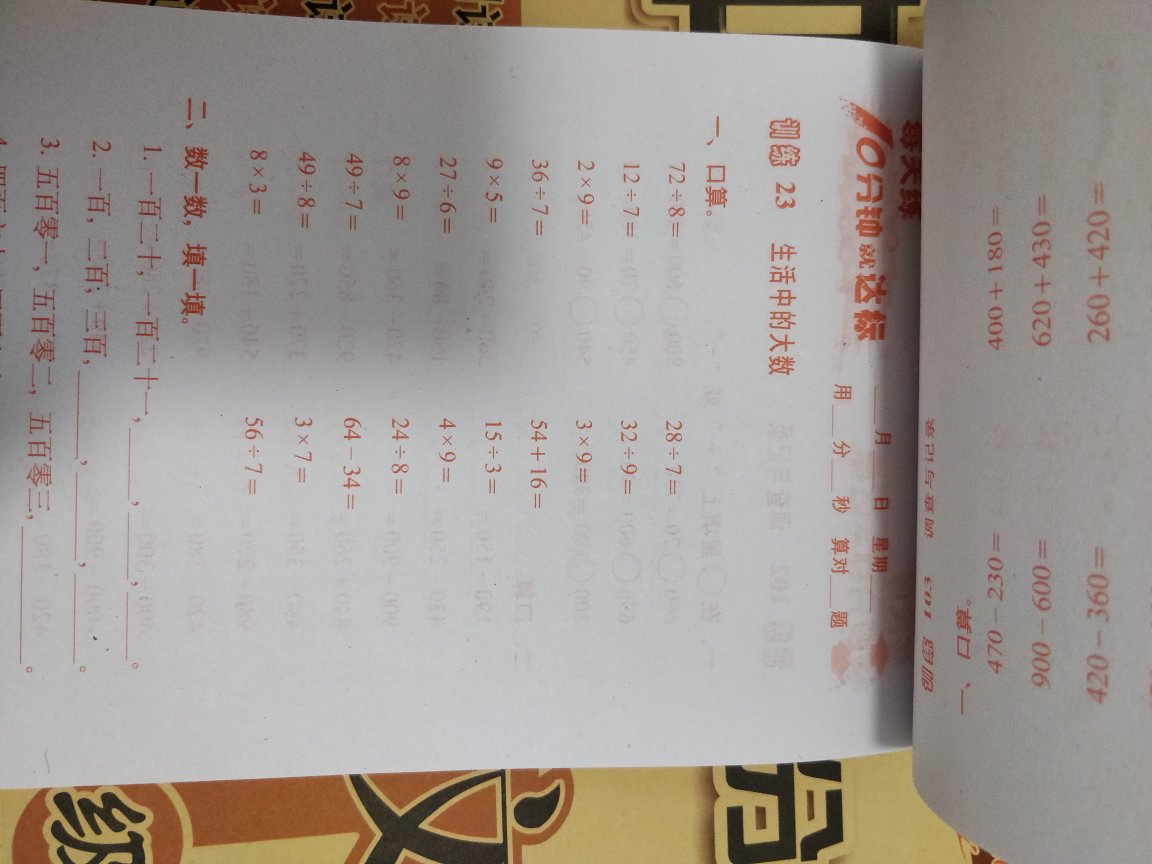 每天练
10分钟就达标
____月____日 星期____
用____分____秒 算对____题
训练 23 生活中的大数
一、口算。
72÷8= 28÷7=
12÷7= 32÷9=
2×9= 3×9=
36÷7= 54+16=
9×5= 15÷3=
27÷6= 4×9=
8×9= 24÷8=
49÷7= 64-34=
49÷8= 3×7=
8×3= 56÷7=
二、数一数，填一填。
1. 一百二十，一百二十一，____，____，____。
2. 一百，二百，三百，____，____，____。
3. 五百零一，五百零二，五百零三，____。
训练 103 调查与记录
一、口算。
470-230= 400+180=
900-600= 620+430=
420-360= 260+420=
级